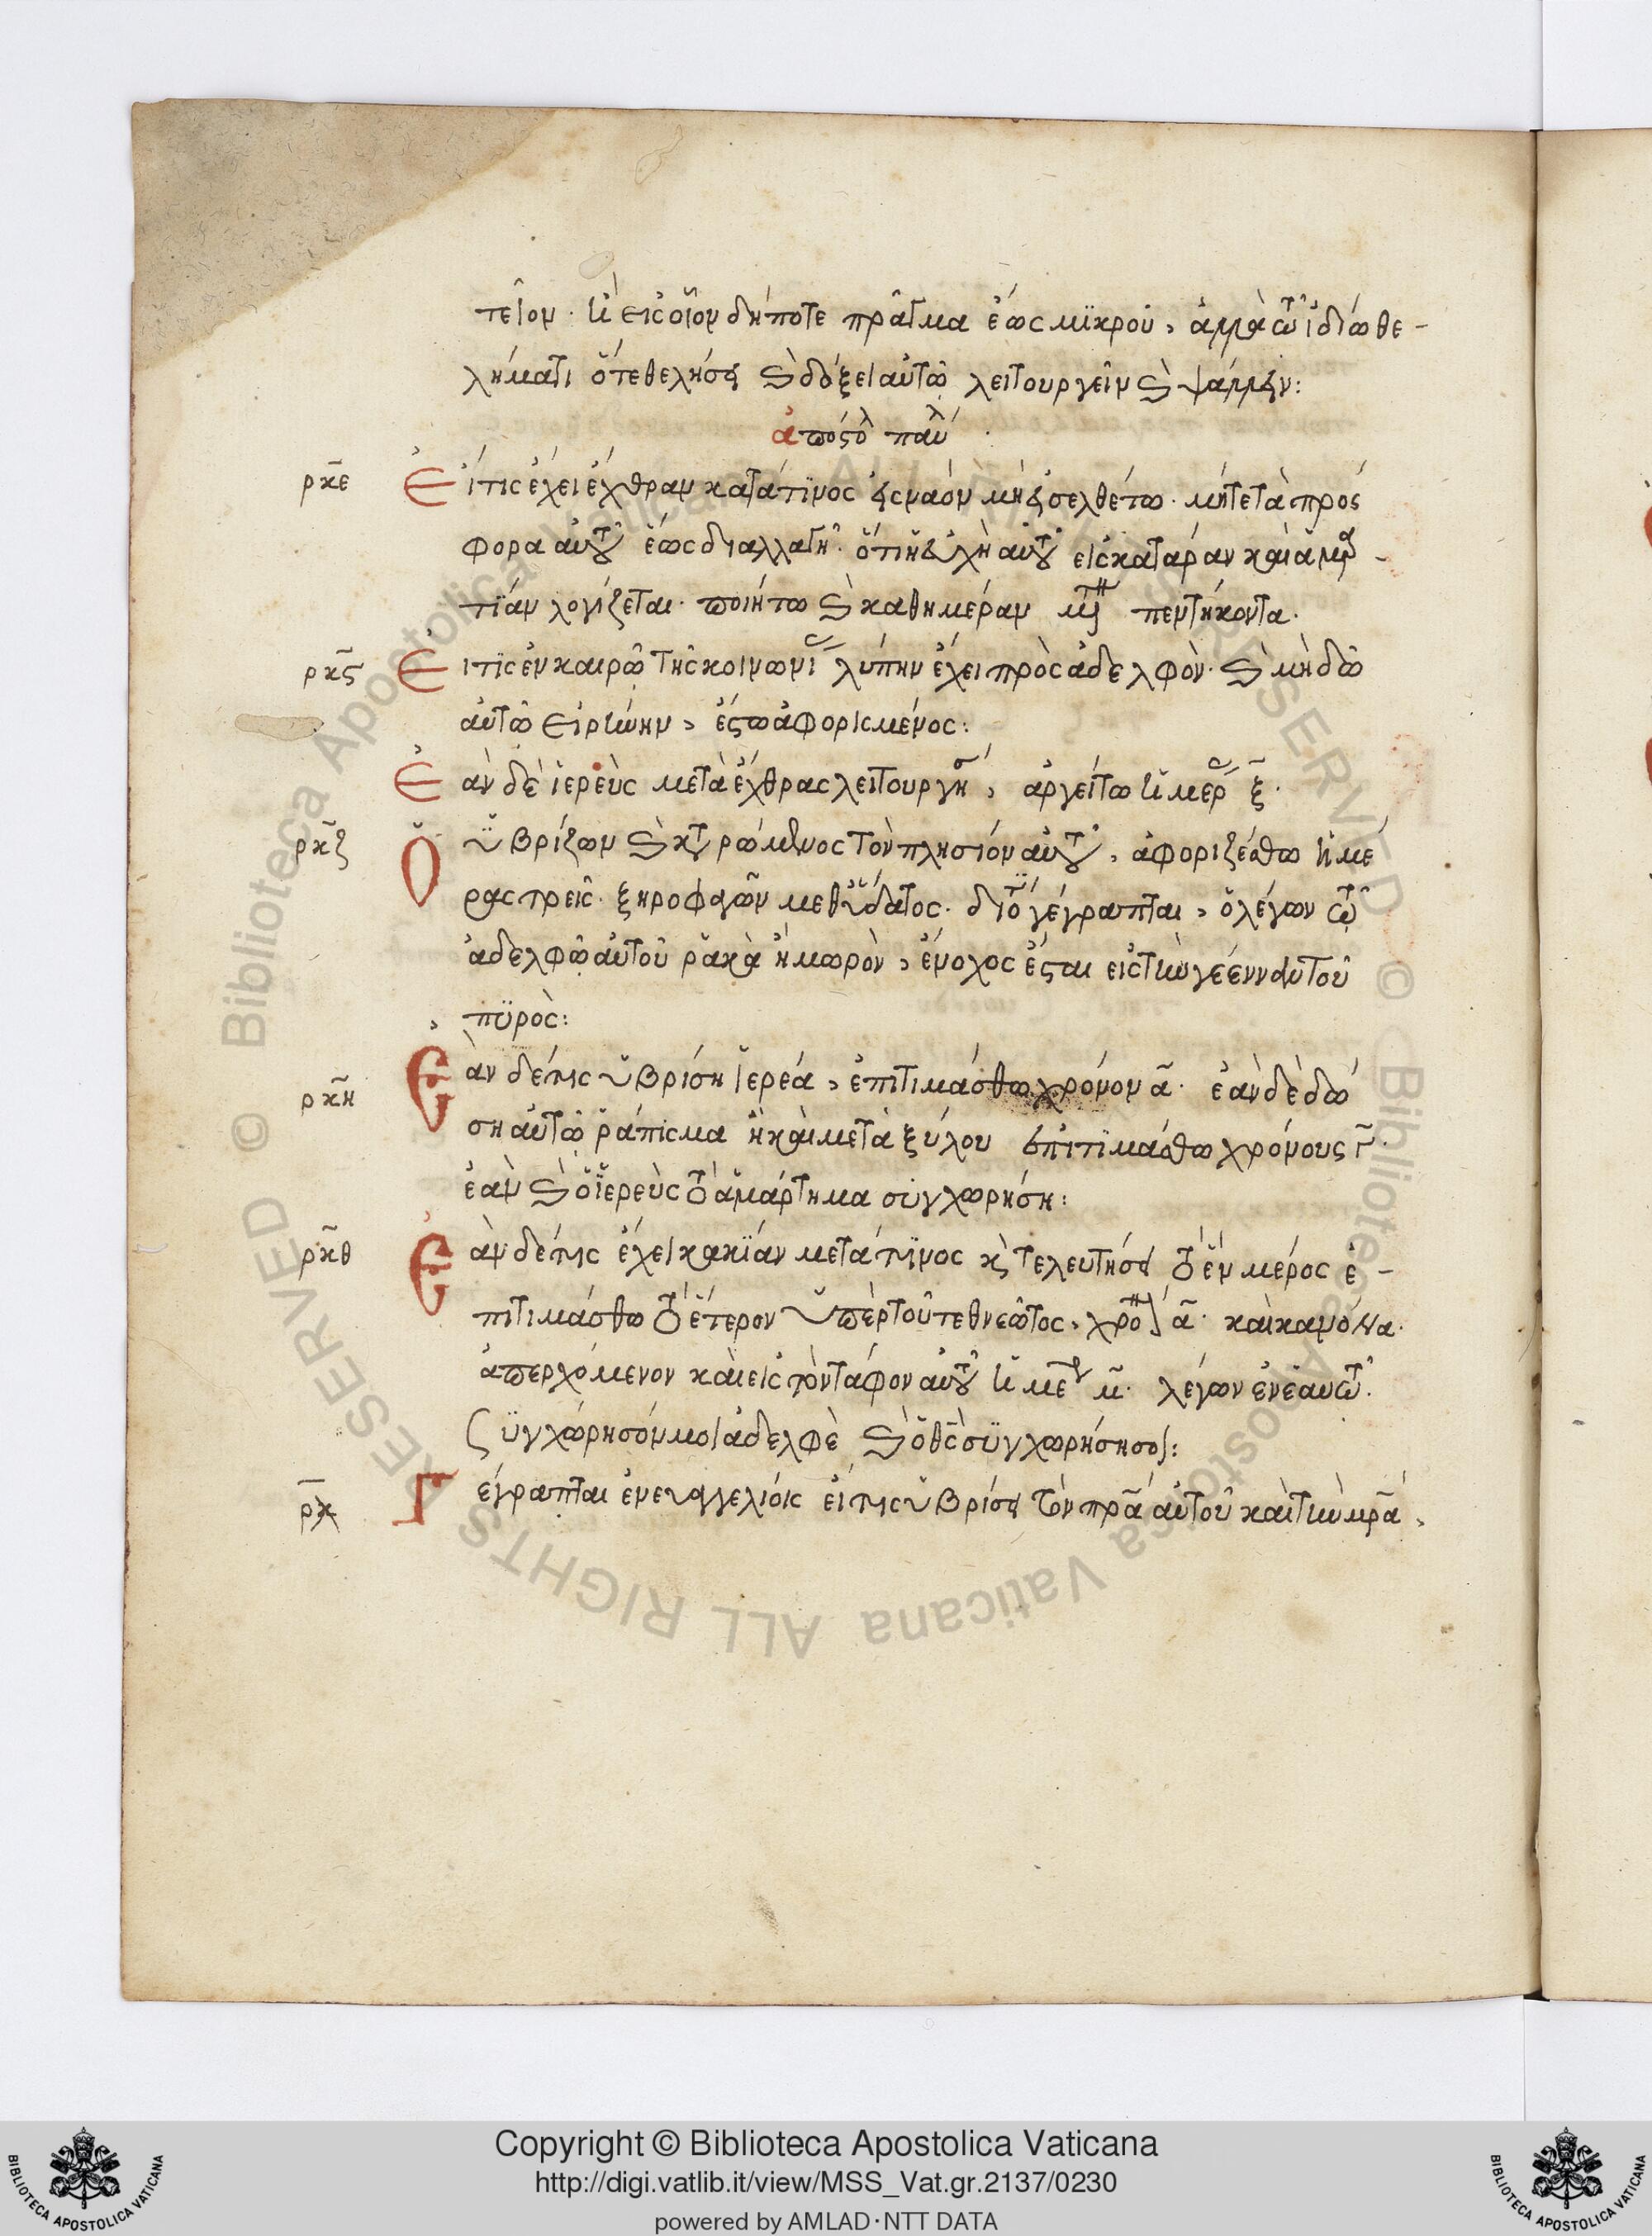 τεῖον· ἢ εἰς οἷον δήποτε πρᾶγμα ἕως μϊκροῦ, ἀλλὰ τῶ ἰδίω θε-
λήματι ὅτε θελήσει καὶ δόξει αὐτῶ λειτουργεῖν καὶ ψάλλειν:
ἀποστολ παύλ·
ρκε Εἴτις ἔχει ἔχθραν κατά τϊνος εἰς ναόν μὴ εἰσελθέτω· μήτε τὰ προς
φορα αὐτοῦ ἕως διαλλαγῆ· ὅτι ἡ εὐχὴ αὐτοῦ εἰς κατάραν καὶ ἁμαρ-
τίαν λογίζεται· ποιήτω καὶ καθημέραν μετ πεντήκοντα·
ρκς Εἴτϊς ἐν καιρῶ τῆς κοινωνίας λύπην ἔχει πρὸς ἀδελφὸν· καὶ μὴ δῶ
αὐτῶ εἰρήνην, ἔστω ἀφορισμένος:
Ἐὰν δὲ ἱερεὺς μετὰ ἔχθρας λειτουργῆ, ἀργείτω ἡμέρας ξ·
ρκζ Ὁ ὑβρίζων καὶ καταρώμενος τὸν πλησίον αὐτοῦ, ἀφοριζέσθω ἡμέ
ρας τρεῖς· ξηροφαγῶν μεθ ὕδατος· διότι γέγραπται, ὁ λέγων τῶ
ἀδελφῶ αὐτοῦ ῥακὰ ἢ μωρὸν, ἔνοχος ἔσται εἰς τὴν γέενναν τοῦ
πϋρὸς:
ρκη Ἐὰν δέ τις ὑβρίση ἱερέα, ἐπιτιμάσθω χρόνον α· ἐὰν δὲ δώ
ση αὐτῶ ῥάπισμα ἢ καὶ μετὰ ξύλου ἐπιτϊμάσθω χρόνους γ·
ἐὰν καὶ ὁ ἱερεὺς τὸ ἁμάρτημα συγχωρήση:
ρκθ Ἐὰν δέ τις ἔχει κακίαν μετά τϊνος καὶ τελευτήσει τὸ ἓν μέρος ἐ-
πιτιμάσθω τὸ ἕτερον ὑπὲρ τοῦ τεθνεῶτος, χρόνον α· καὶ κανόνα·
ἀπερχόμενον καὶ εἰς τὸν τάφον αὐτοῦ ἡμέρας μ· λέγων ἐν ἑαυτῶ·
Σϋγχώρησόν μοι ἀδελφὲ καὶ ὁ θς σϋγχωρήση σοι:
ρλ Γέγραπται ἐν εὐαγγελίοις εἴ τις ὑβρίσει τὸν πρα αὐτοῦ καὶ τὴν μρα,
© Biblioteca Apostolica Vaticana ALL RIGHTS RESERVED
Copyright © Biblioteca Apostolica Vaticana
http://digi.vatlib.it/view/MSS_Vat.gr.2137/0230
powered by AMLAD·NTT DATA
BIBLIOTECA APOSTOLICA VATICANA
BIBLIOTECA APOSTOLICA VATICANA